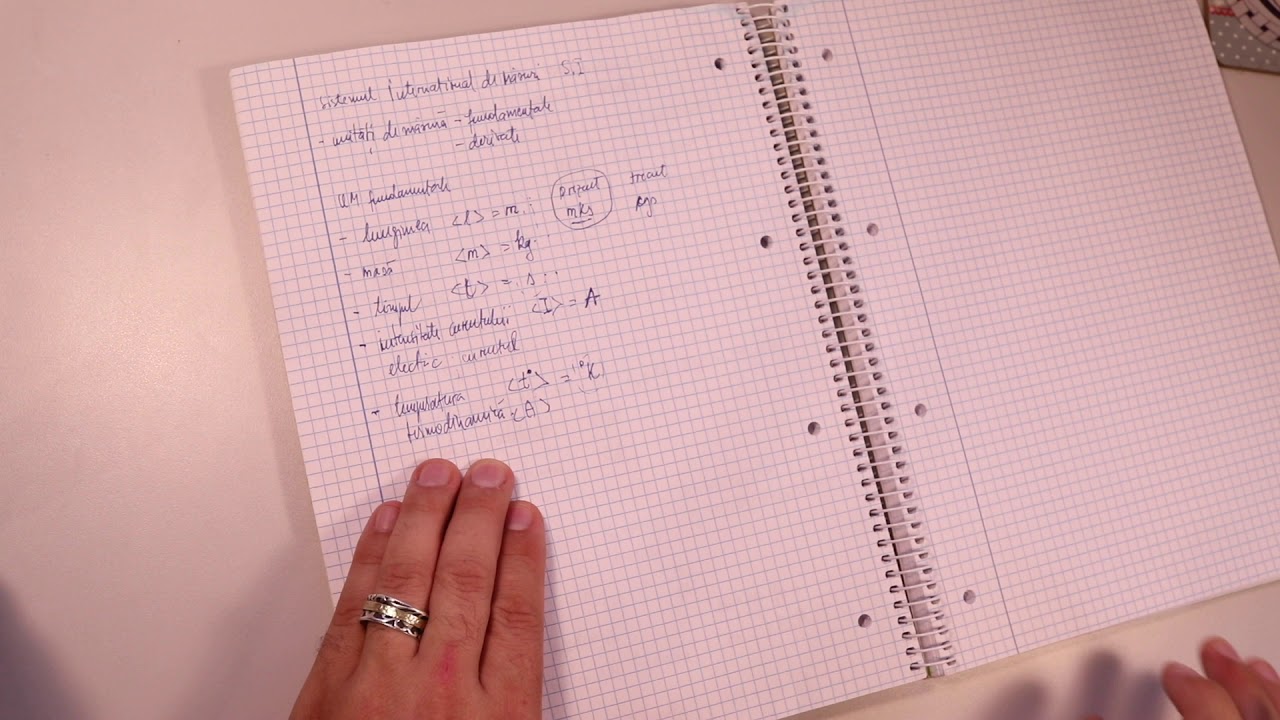 Sistemul Internațional de Măsuri S.I
- unități de măsură - fundamentale
- derivate
UM fundamentale
- lungimea <l> = m
prezent
mKs
trecut
- masă <m> = kg
- timpul <t> = s
- intensitate curentului <I> = A
electric curentul
- temperatura <t°> = °K
termodinamică <A>